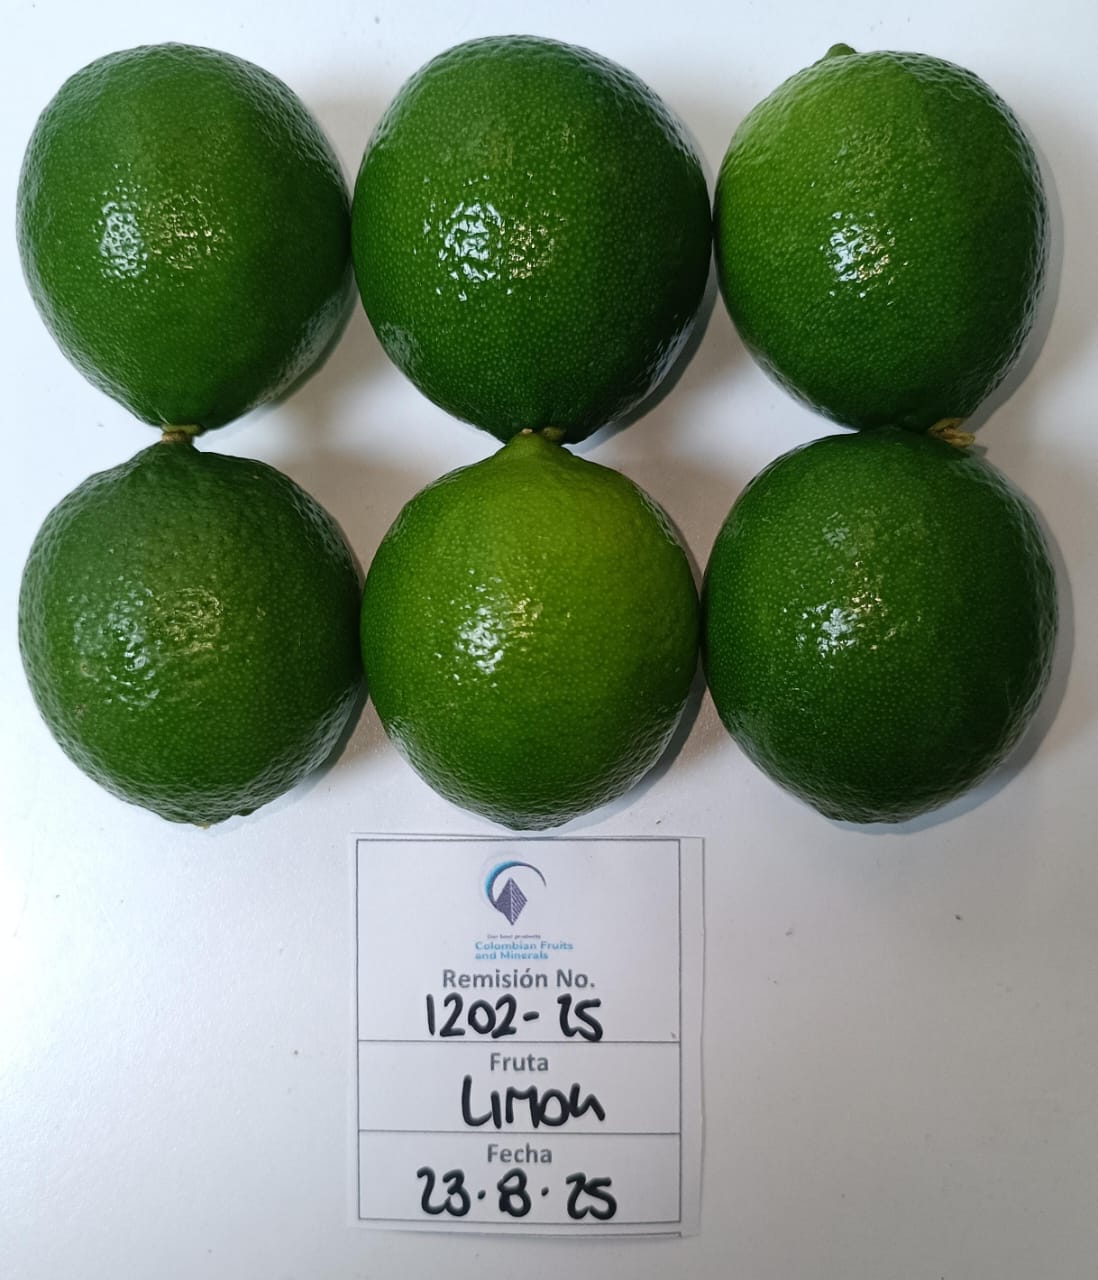 Our best products
Colombian Fruits
and Minerals
Remisión No.
1202-25
Fruta
LIMON
Fecha
23.8.25